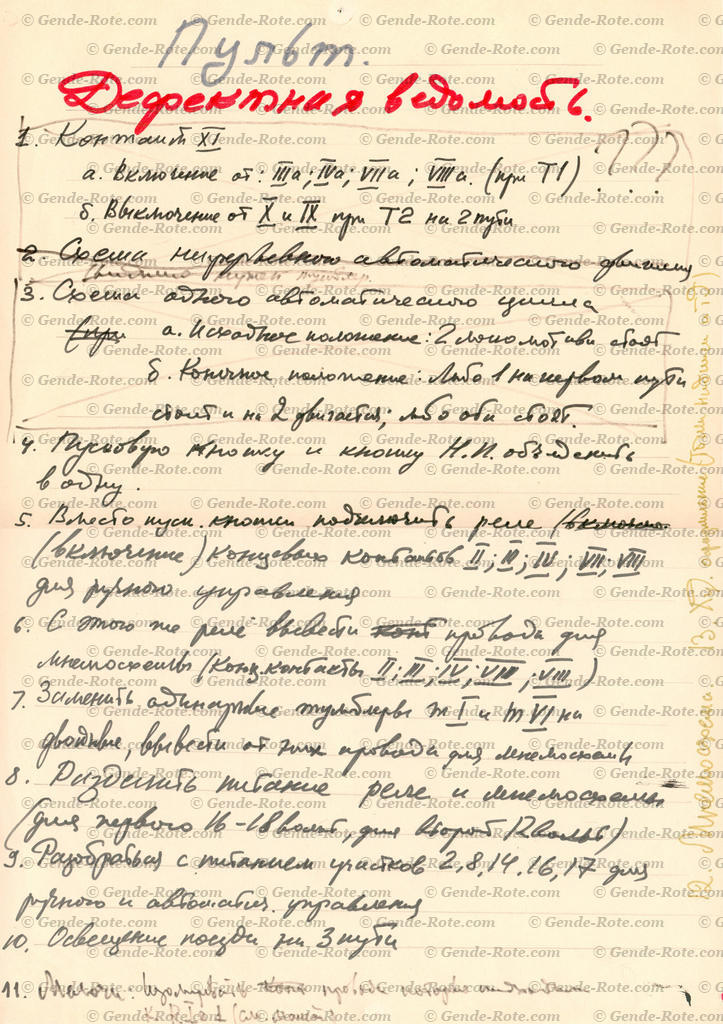 Пульт.
Дефектная ведомость.
1. Контакт XI ???
а. Включение от: IIIа; IVа; VIIа; VIIIа. (при Т1)
б. Выключение от X и IX при Т2 на 2 пути
2. Схема непрерывного автоматического движения
3. Схема одного автоматического цикла
(при а. Исходное положение: 2 локомотива стоят
б. Конечное положение: либо 1 на первом пути
стоит и на 2 двигается; либо оба стоят.
4. Пусковую кнопку и кнопку Н.П. объеденить
в одну.
5. Вместо пуск. кнопки подключить реле (включ
(включение) концевых контактов II; III; IV; VII; VIII
для ручного управления
6. С этого же реле вывести конт провода для
мнемосхемы (конц. контакты II; III; IV; VIII; VIII)
7. Заменить одинарные тумблеры т I и т VI на
двойные, вывести от них провода для мнемосхемы
8. Разделить питание реле и мнемосхемы
(для первого 16-18 вольт, для второй 12 вольт)
9. Разобраться с питанием участков 2, 8, 14, 16, 17 для
ручного и автоматич. управления
10. Освещение поезда на 3 пути
11. Мелочи. Изолировать конт провода которые
12. Мнемосхема
13.
© Gende-Rote.com